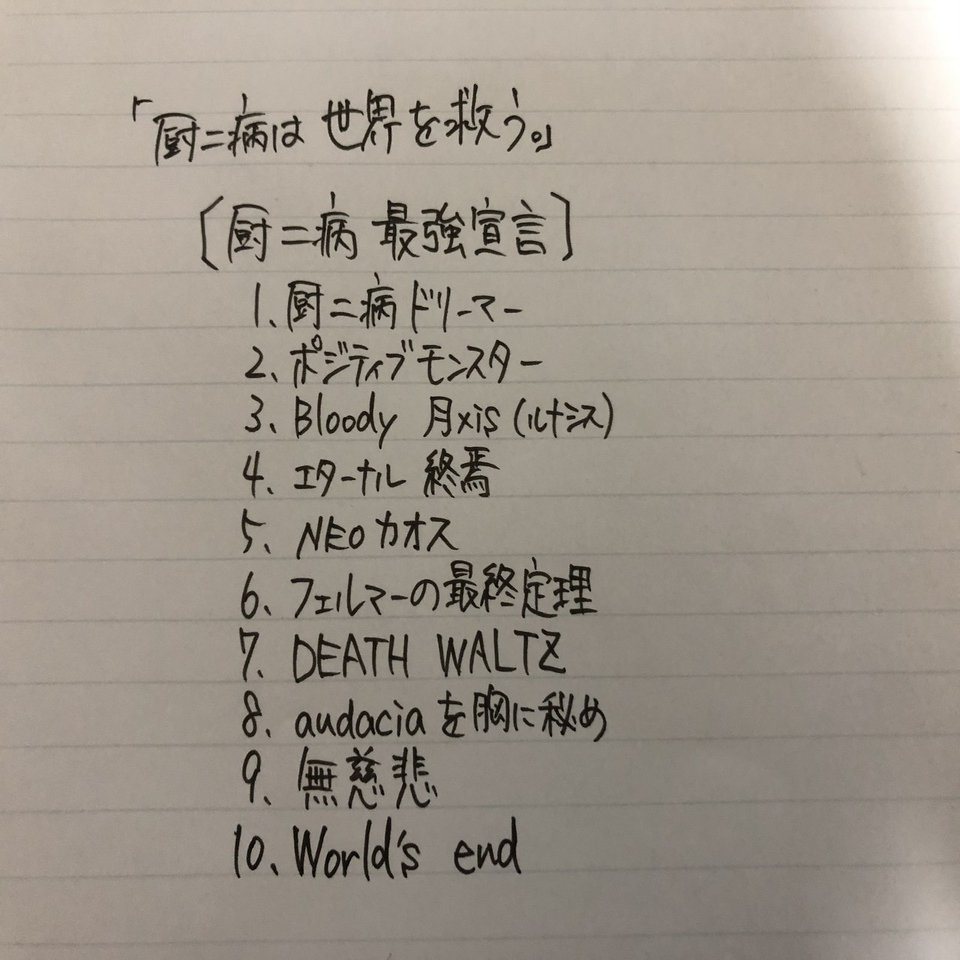 「厨二病は世界を救う。」
〔厨二病 最強宣言〕
1、厨二病ドリーマー
2、ポジティブモンスター
3、Bloody 月xis (ルナシス)
4、エターナル 終焉
5、NEOカオス
6、フェルマーの最終定理
7、DEATH WALTZ
8、audaciaを胸に秘め
9、無慈悲
10、World's end